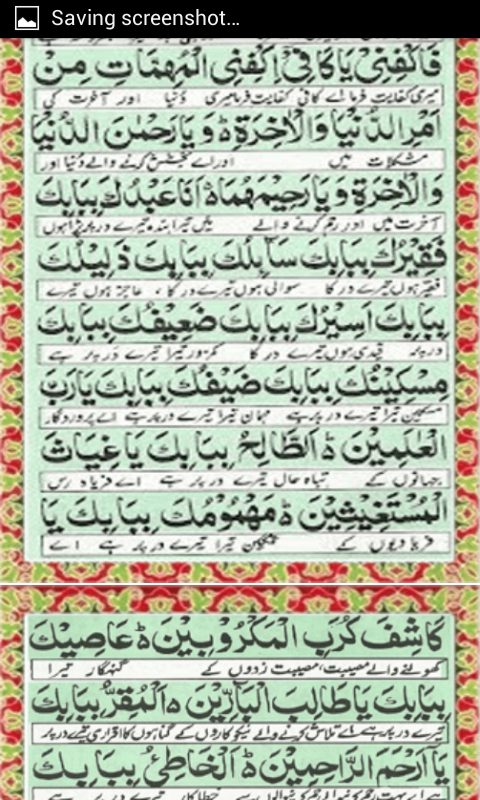 Saving screenshot...
فَاكْفِنِيْ يَا كَافِيْ اِكْفِنِي الْمُهِمَّاتِ مِنْ
میری کفایت فرما اے کافی کفایت فرما میری دُنیا اور آخرت کی
اَمْرِ الدُّنْيَا وَالْاٰخِرَةِ ط وَ يَا رَحْمٰنَ الدُّنْيَا
مشکلات میں اور اے بخشش کرنے والے دُنیا اور
وَالْاٰخِرَةِ وَ يَا رَحِيْمَهُمَا ط اَنَا عَبْدُكَ بِبَابِكَ
آخرت میں اور رحم کرنے والے میں تیرا بندہ تیرے در پر پڑا ہوں
فَقِيْرُكَ بِبَابِكَ سَآئِلُكَ بِبَابِكَ ذَلِيْلُكَ
فقیر ہوں تیرے در کا سوالی ہوں تیرے در کا ، عاجز ہوں تیرے
بِبَابِكَ اَسِيْرُكَ بِبَابِكَ ضَعِيْفُكَ بِبَابِكَ
در پر قیدی ہوں تیرے در کا کمزور تیرا تیرے در پر ہے
مِسْكِيْنُكَ بِبَابِكَ ضَيْفُكَ بِبَابِكَ يَا رَبَّ
مسکین تیرا تیرے در پر ہے مہمان تیرا تیرے در پر ہے اے پروردگار
الْعٰلَمِيْنَ ط اَلطَّالِحُ بِبَابِكَ يَا غِيَاثَ
جہانوں کے تباہ حال تیرے در پر ہے اے فریاد رس
الْمُسْتَغِيْثِيْنَ ط مَهْمُوْمُكَ بِبَابِكَ يَا
فریادیوں کے غمگین تیرا تیرے در پر ہے اے
كَاشِفَ كُرَبِ الْمَكْرُوْبِيْنَ ط عَاصِيْكَ
کھولنے والے مصیبت، مصیبت زدوں کے گنہگار تیرا
بِبَابِكَ يَا طَالِبَ الْبَآرِّيْنَ ط اَلْمُقِرُّ بِبَابِكَ
تیرے در پر ہے اے تلاش کرنے والے نیکوکاروں کے گناہوں کا اقراری تیرے در پر
يَآ اَرْحَمَ الرَّاحِمِيْنَ ط اَلْخَاطِئُ بِبَابِكَ